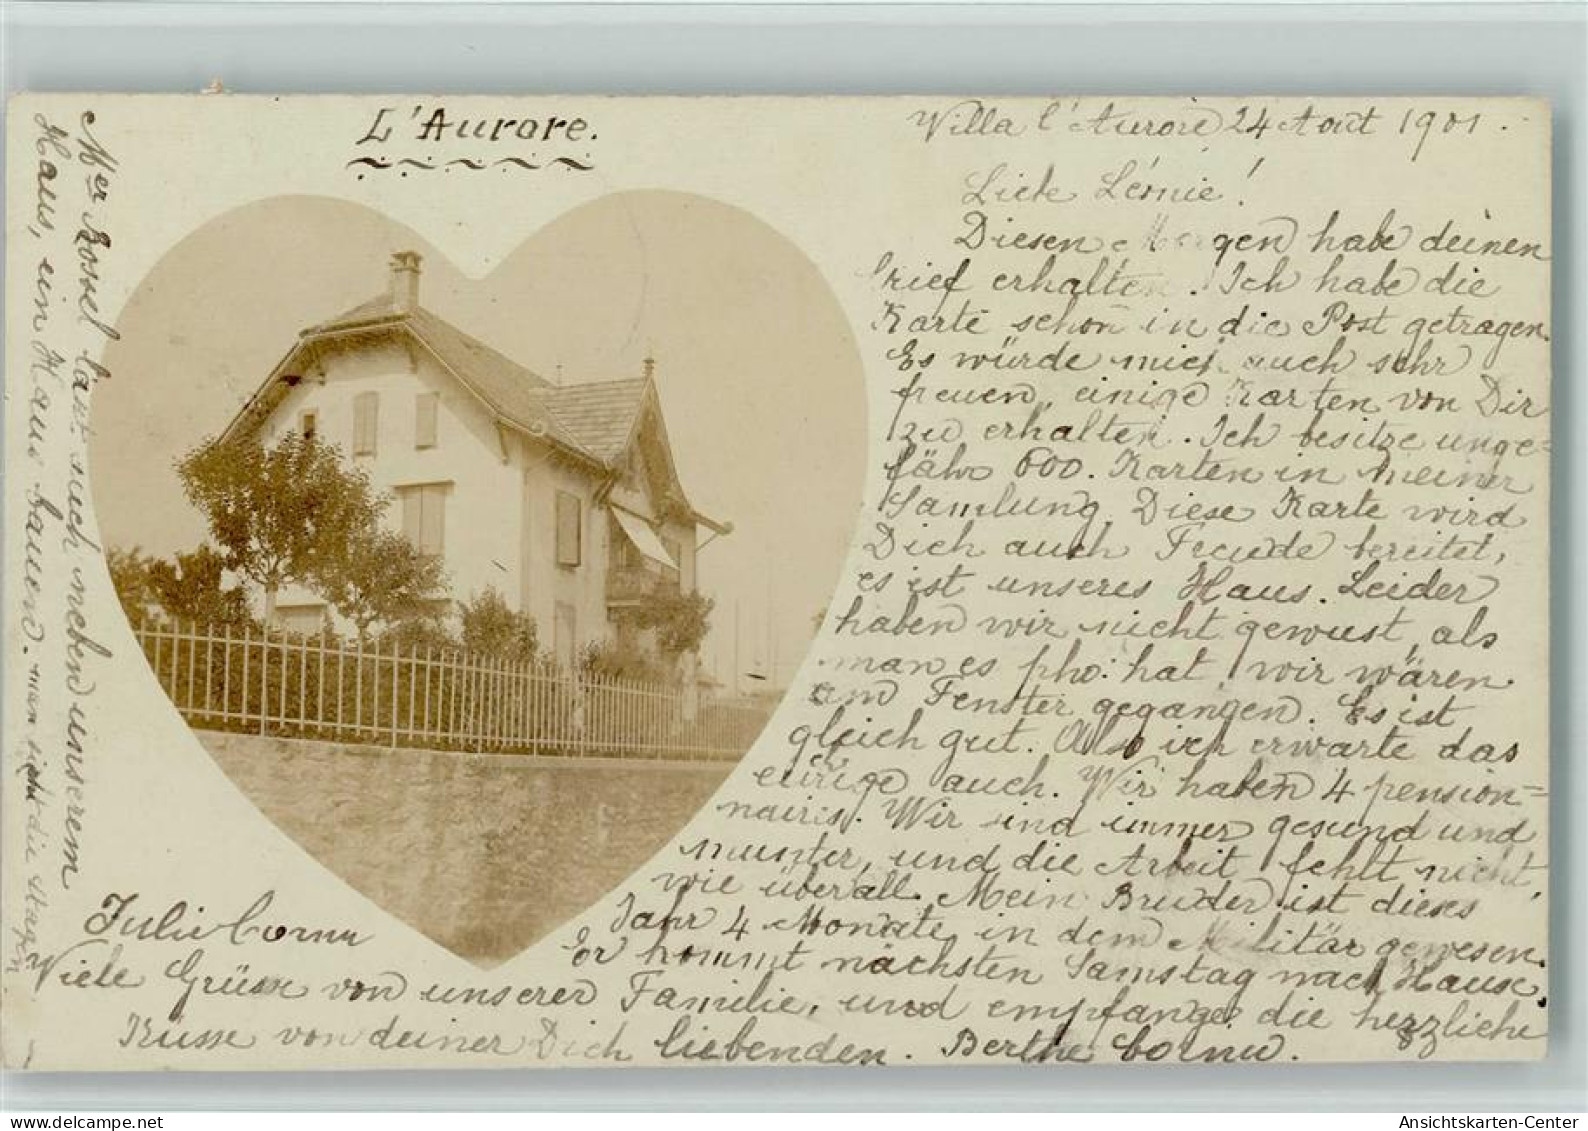 L'Aurore.
Villa l'Aurore 24 Aout 1901.
Liebe Léonie!
Diesen Morgen habe deinen
Brief erhalten. Ich habe die
Karte schon in die Post getragen.
Es würde mich auch sehr
freuen, einige Karten von Dir
zu erhalten. Ich besitze unge=
fähr 600. Karten in meiner
Samlung. Diese Karte wird
Dich auch Freude bereitet,
es ist unseres Haus. Leider
haben wir nicht gewust, als
man es pho: hat, wir wären
am Fenster gegangen. Es ist
gleich gut. Also ich erwarte das
eurige auch. Wir haben 4 pension=
nairis. Wir sind immer gesund und
munter, und die Arbeit fehlt nicht,
wie überall. Mein Bruder ist dieses
Jahr 4 Monate in dem Militär gewesen.
Er kommt nächsten Samstag nach Hause.
Viele Grüsse von unserer Familie, und empfange die herzliche
Küsse von deiner Dich liebenden. Berthe Cornu.
Julie Cornu
Mer Rossel lässt auch neben unserem
Haus, ein Haus bauen. man sieht die
delcampe.net
Ansichtskarten-Center